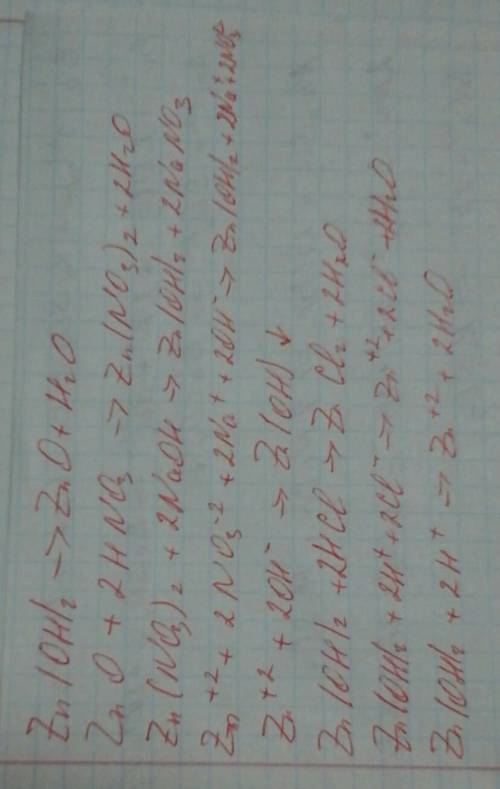 Zn(OH)2 -> ZnO + H2O
ZnO + 2HNO3 -> Zn(NO3)2 + 2H2O
Zn(NO3)2 + 2NaOH -> Zn(OH)2 + 2NaNO3
Zn+2 + 2NO3-2 + 2Na+ + 2OH- -> Zn(OH)2 + 2Na+ + 2NO3-2
Zn+2 + 2OH- -> Zn(OH) ↓
Zn(OH)2 + 2HCl -> ZnCl2 + 2H2O
Zn(OH)2 + 2H+ + 2Cl- -> Zn+2 + 2Cl- + 2H2O
Zn(OH)2 + 2H+ -> Zn+2 + 2H2O